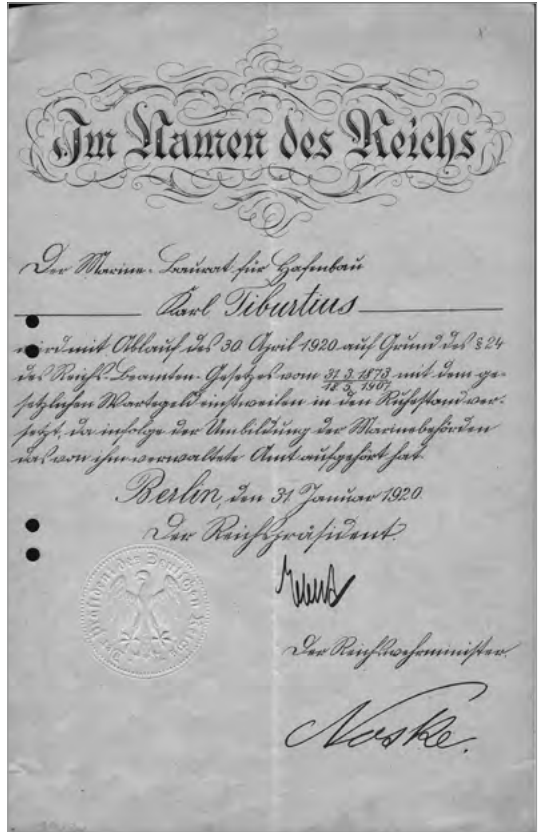 Im Namen des Reichs
Der Marine-Baurat für Hafenbau
Karl Tiburtius
wird mit Ablauf des 30 April 1920 auf Grund des § 24
des Reichs-Beamten-Gesetzes vom 31.3.1873 / 18.5.1907 mit dem ge-
setzlichen Wartegeld einstweilen in den Ruhestand ver-
setzt, da infolge der Umbildung der Marinebehörden
das von ihm verwaltete Amt aufgehört hat.
Berlin, den 31 Januar 1920.
Der Reichspräsident.
Ebert
Der Reichswehrminister.
Noske.